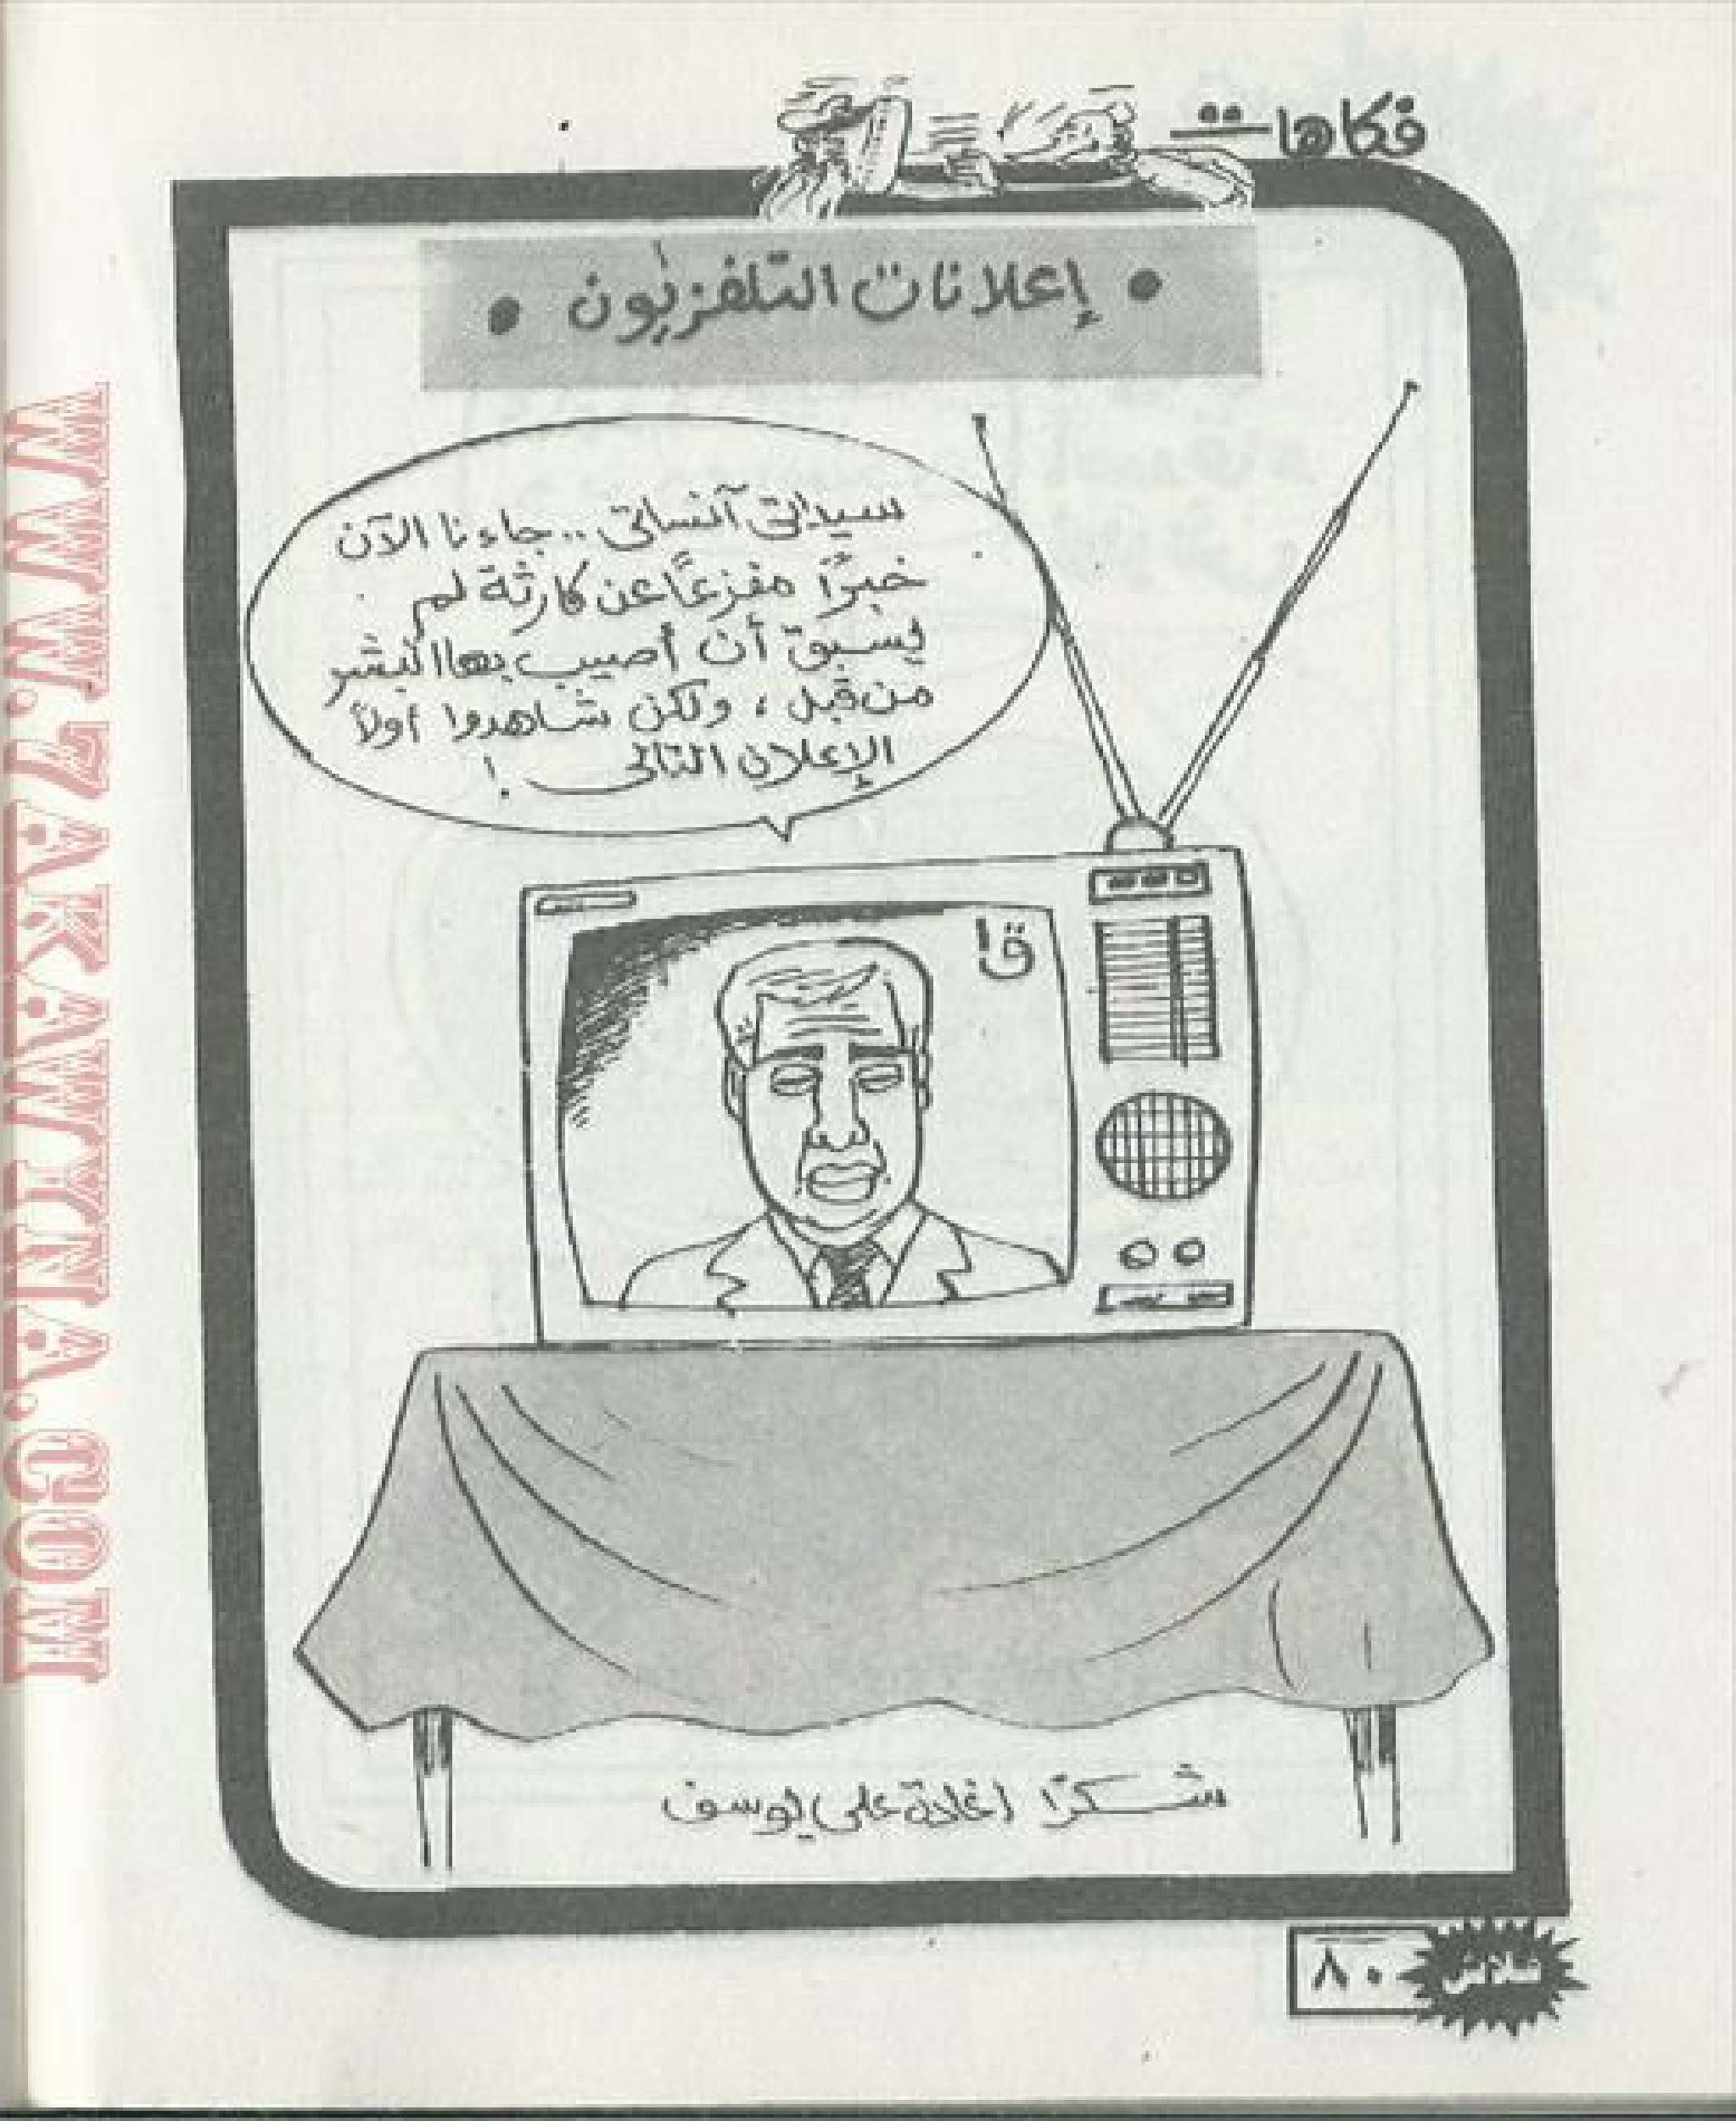 فكاهات
• إعلانات التلفزيون •
سيداتى آنساتى .. جاءنا الآن
خبرًا مفزعًا عن كارثة لم
يسبق أن أصيب بها البشر
من قبل ، ولكن شاهدوا أولاً
الإعلان التالى !
ق١
شكرًا / غادة على يوسف
٨٠
فلاش
WWW.ZAKAWYNA.COM